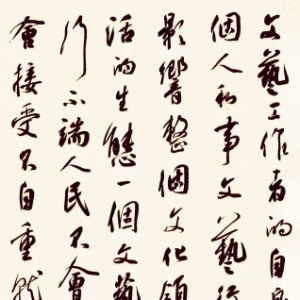 文藝工作者的自身
個人私事文藝行
影響整個文化領
活的生態一個文藝
行不端人民不會
會接受不自重就